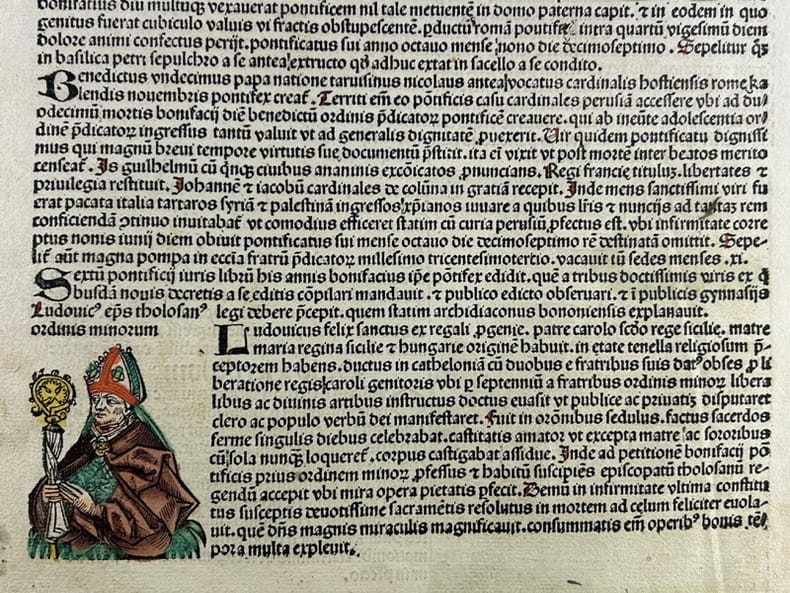 bonifatius diu multuqꝫ vexauerat pontificem nil tale metuentē in domo paterna capit. ⁊ in eodem in quo
genitus fuerat cubiculo valuis vi fractis obstupescentē. ꝑductūꝙ romā pontificē, intra quartū vigesimum diem
dolore animi confectus perijt. pontificatus sui anno octauo mense nono die decimoseptimo. Sepelitur qꝫ
in basilica petri sepulchro a se antea extructo qd̓ adhuc extat in sacello a se condito.
Benedictus vndecimus papa natione taruisinus nicolaus antea vocatus cardinalis hostiensis rome ka
lendis nouembris pontifex creat᷒. Territi em̄ eo pōtificis casu cardinales perusiā accessere vbi ad du/
odecimū mortis bonifacij diē benedictū ordinis p̄dicatoꝝ pontificē creauere. qui ab ineūte adolescentia or/
dinē p̄dicatoꝝ ingressus tantū valuit vt ad generalis dignitatē ꝓuexerit. Uir quidem pontificatu dignissi
mus qui magnū breui tempore virtutis sue documentū p̄stitit. ita em̄ vixit vt post mortē inter beatos merito
censeat᷒. Is guilhelmū cū qͥnqꝫ ciuibus ananinis excōicatos ꝓnuncians. Regi francie titulus. libertates ⁊
priuilegia restituit. Johannē ⁊ iacobū cardinales de colūna in gratiā recepit. Inde mens sanctissimi viri fu
erat pacata italia tartaros syriā ⁊ palestinā ingressos xp̄ianos iuuare a quibus lr̄is ⁊ nuncijs ad tantaꝫ rem
conficiendā ꝯtinuo inuitabat᷒ vt comodius efficeret statim cū curia perusiū ꝓfectus est. vbi infirmitate corre
ptus nonis iunij diem obiuit pontificatus sui mense octauo die decimoseptimo rē destinatā omittit. Sepe-
lit᷒ aūt magna pompa in eccīa fratrū p̄dicatoꝝ millesimo tricentesimotertio. vacauit iū sedes menses .xi.
Sextū pontificij iuris librū his annis bonifacius ip̄e pōtifex edidit. quē a tribus doctissimis viris ex q̄
busdā nouis decretis a se editis cōpilari mandauit. ⁊ publico edicto obseruari. ⁊ ī publicis gynnasijs
Ludouic᷒ ep̄s tholosan᷒ legi debere p̄cepit. quem statim archidiaconus bononiensis explanauit.
ordinis minorum
Ludouicus felix sanctus ex regali ꝓgenie. patre carolo scd̓o rege sicilie. matre
maria regina sicilie ⁊ hungarie originē habuit. in etate tenella religiosum p̄-
ceptorem habens. ductus in catheloniā cū duobus e fratribus suis dat᷒ obses ꝓ li
beratione regis karoli genitoris vbi ꝑ septenniū a fratribus ordinis minoꝝ libera
libus ac diuinis artibus instructus doctus euasit vt publice ac priuatiꝫ disputaret
clero ac populo verbū dei manifestaret. Fuit in orōnibus sedulus. factus sacerdos
ferme singulis diebus celebrabat. castitatis amator vt excepta matre ac sororibus
cū sola nunqꝫ loqueret᷒. corpus castigabat assidue. Inde ad petitionē bonifacij pō
tificis prius ordinem minoꝝ ꝓfessus ⁊ habitū suscipiēs episcopatū tholosanū re-
gendū accepit vbi mira opera pietatis ꝑfecit. Demū in infirmitate vltima constitu
tus susceptis deuotissime sacramētis resolutus in mortem ad celum feliciter euola-
uit. quē dn̄s magnis miraculis magnificauit. consummatis em̄ operib᷒ bonis tē
pora multa expleuit.